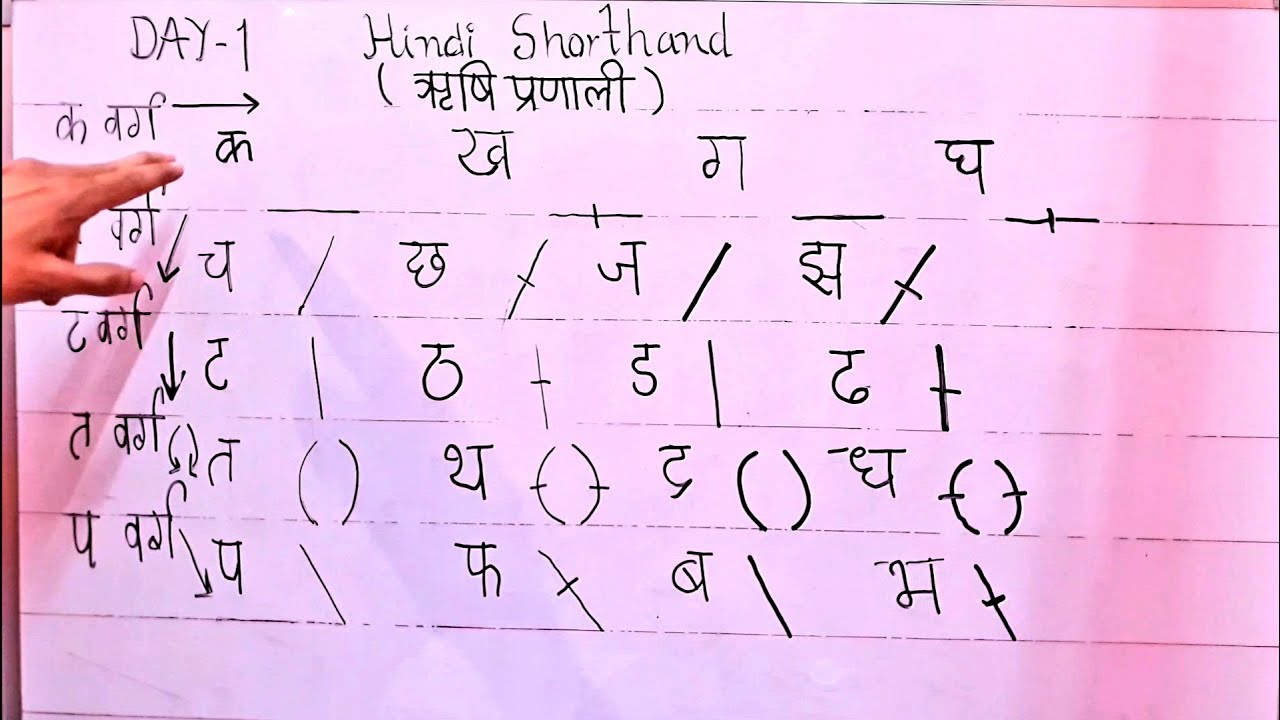 DAY-1 Hindi Shorthand
(ऋषि प्रणाली)
क वर्ग
क ख ग घ
वर्ग च छ ज झ
ट वर्ग
ट ठ ड ढ
त वर्ग त थ द ध
प वर्ग प फ ब भ